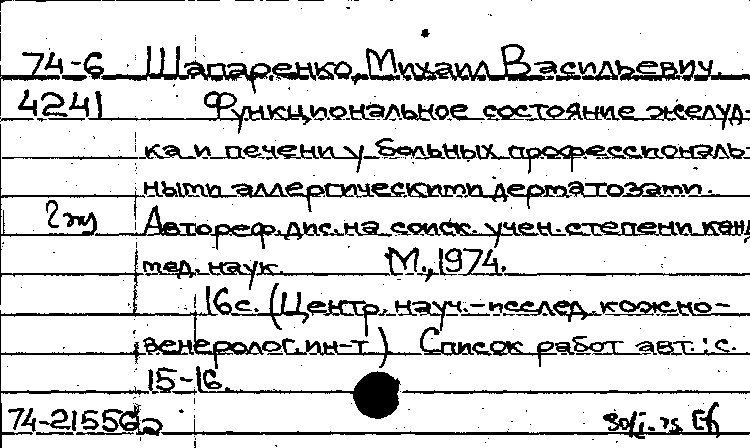 74-6 Шапаренко, Михаил Васильевич.
4241 Функциональное состояние желуд-
ка и печени у больных профессиональ-
ными аллергическими дерматозами.
2 экз Автореф. дис. на соиск. учен. степени канд.
мед. наук. М., 1974.
16 с. (Центр. науч.-исслед. кожно-
венеролог. ин-т) Список работ авт.: с.
15-16.
74-21556
30/I-75